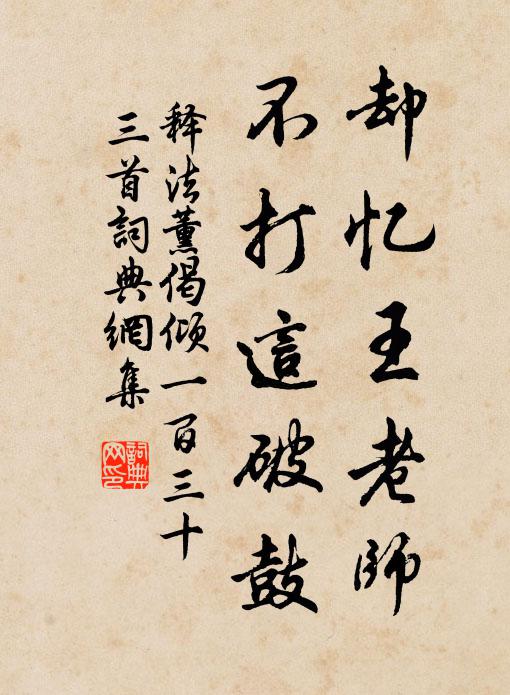 却忆王老师
不打這破鼓
释法薰偈倾一百三十
三首詞典網集
詞典网印